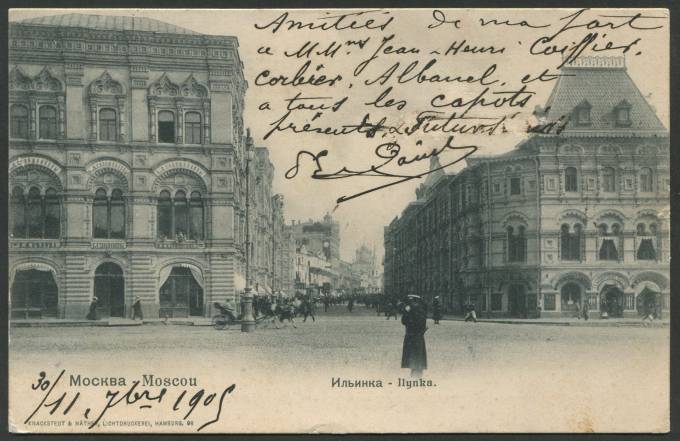 Amitiés de ma part
a M Mrs Jean-Henri Coiffier,
corbier, Albanel, et
a tous les capots,
présents & futurs
Москва - Moscou
Ильинка - Ilynka.
30/11, 7bre 1905
KNACKSTEDT & NÄTHER, LICHTDRUCKEREI, HAMBURG. 96